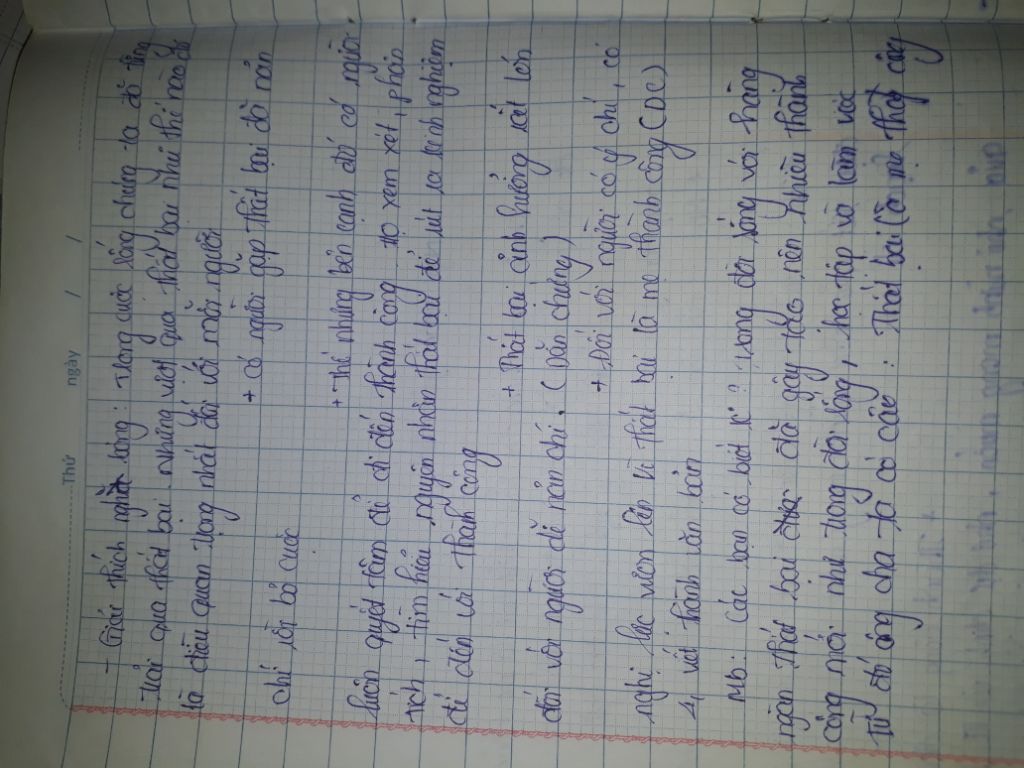 Thứ ngày / /
- Giải thích nghĩa bóng: Trong cuộc sống chúng ta đã từng
trải qua thất bại. Nhưng vượt qua thất bại như thế nào đó
là điều quan trọng nhất đối với mỗi người
+ Có người gặp thất bại đã nản
chí rồi bỏ cuộc
+ Thế nhưng bên cạnh đó có người
luôn quyết tâm để đi đến thành công họ xem xét, phân
tích, tìm hiểu nguyên nhân thất bại để rút ra kinh nghiệm
để đến với thành công
+ Thất bại ảnh hưởng rất lớn
đối với người dễ nản chí. (Dẫn chứng)
+ Đối với người có ý chí, có
nghị lực vươn lên vì thất bại là mẹ thành công (DC)
4, viết thành văn bản
Mb: Các bạn có biết k? trong đời sống với hàng
ngàn thất bại đã gây dựng nên nhiều thành
công mới như trong đời sống, học tập và làm việc
Từ đó ông cha ta có câu: Thất bại là mẹ thành công